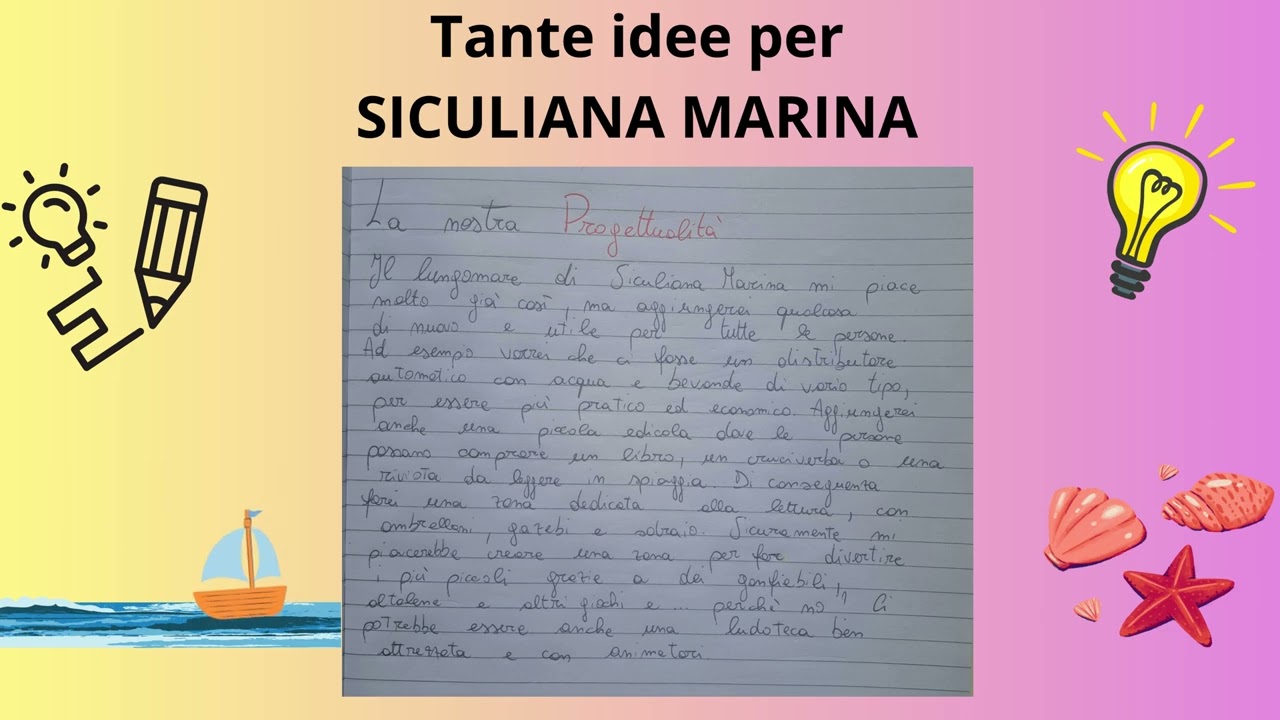 Tante idee per
SICULIANA MARINA
La nostra Progettualità
Il lungomare di Siculiana Marina mi piace
molto già così, ma aggiungerei qualcosa
di nuovo e utile per tutte le persone.
Ad esempio vorrei che ci fosse un distributore
automatico con acqua e bevande di vario tipo,
per essere più pratico ed economico. Aggiungerei
anche una piccola edicola dove le persone
possano comprare un libro, un cruciverba o una
rivista da leggere in spiaggia. Di conseguenza
farei una zona dedicata alla lettura, con
ombrelloni, gazebi e sdraio. Sicuramente mi
piacerebbe creare una zona per far divertire
i più piccoli grazie a dei gonfiabili,
altalene e altri giochi e ... perchè no, Ci
potrebbe essere anche una ludoteca ben
attrezzata e con animatori.